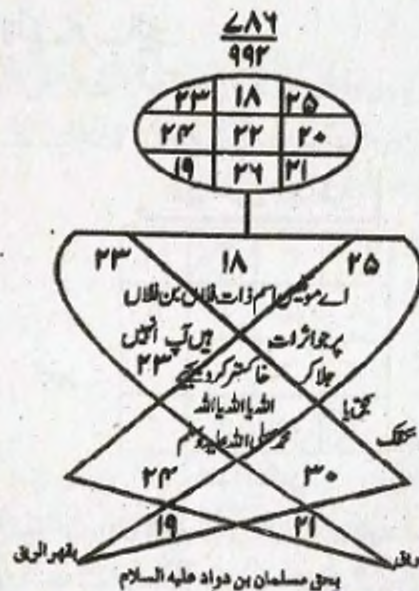 ۷۸۶
۹۹۲
۲۳ ۱۸ ۲۵
۲۴ ۲۲ ۲۰
۱۹ ۲۶ ۲۱
۲۳ ۱۸ ۲۵
اے اسم ذات فلاں بن فلاں
پر جو اثرات ہیں آپ انہیں
جلا کر خاکستر کر دیجیے
۲۳
اللہ یا اللہ یا اللہ
بحق یا
محمد صلی اللہ علیہ وسلم
۲۴ ۳۰
۱۹ ۲۱
بحق مسلمان بن دواد علیہ السلام